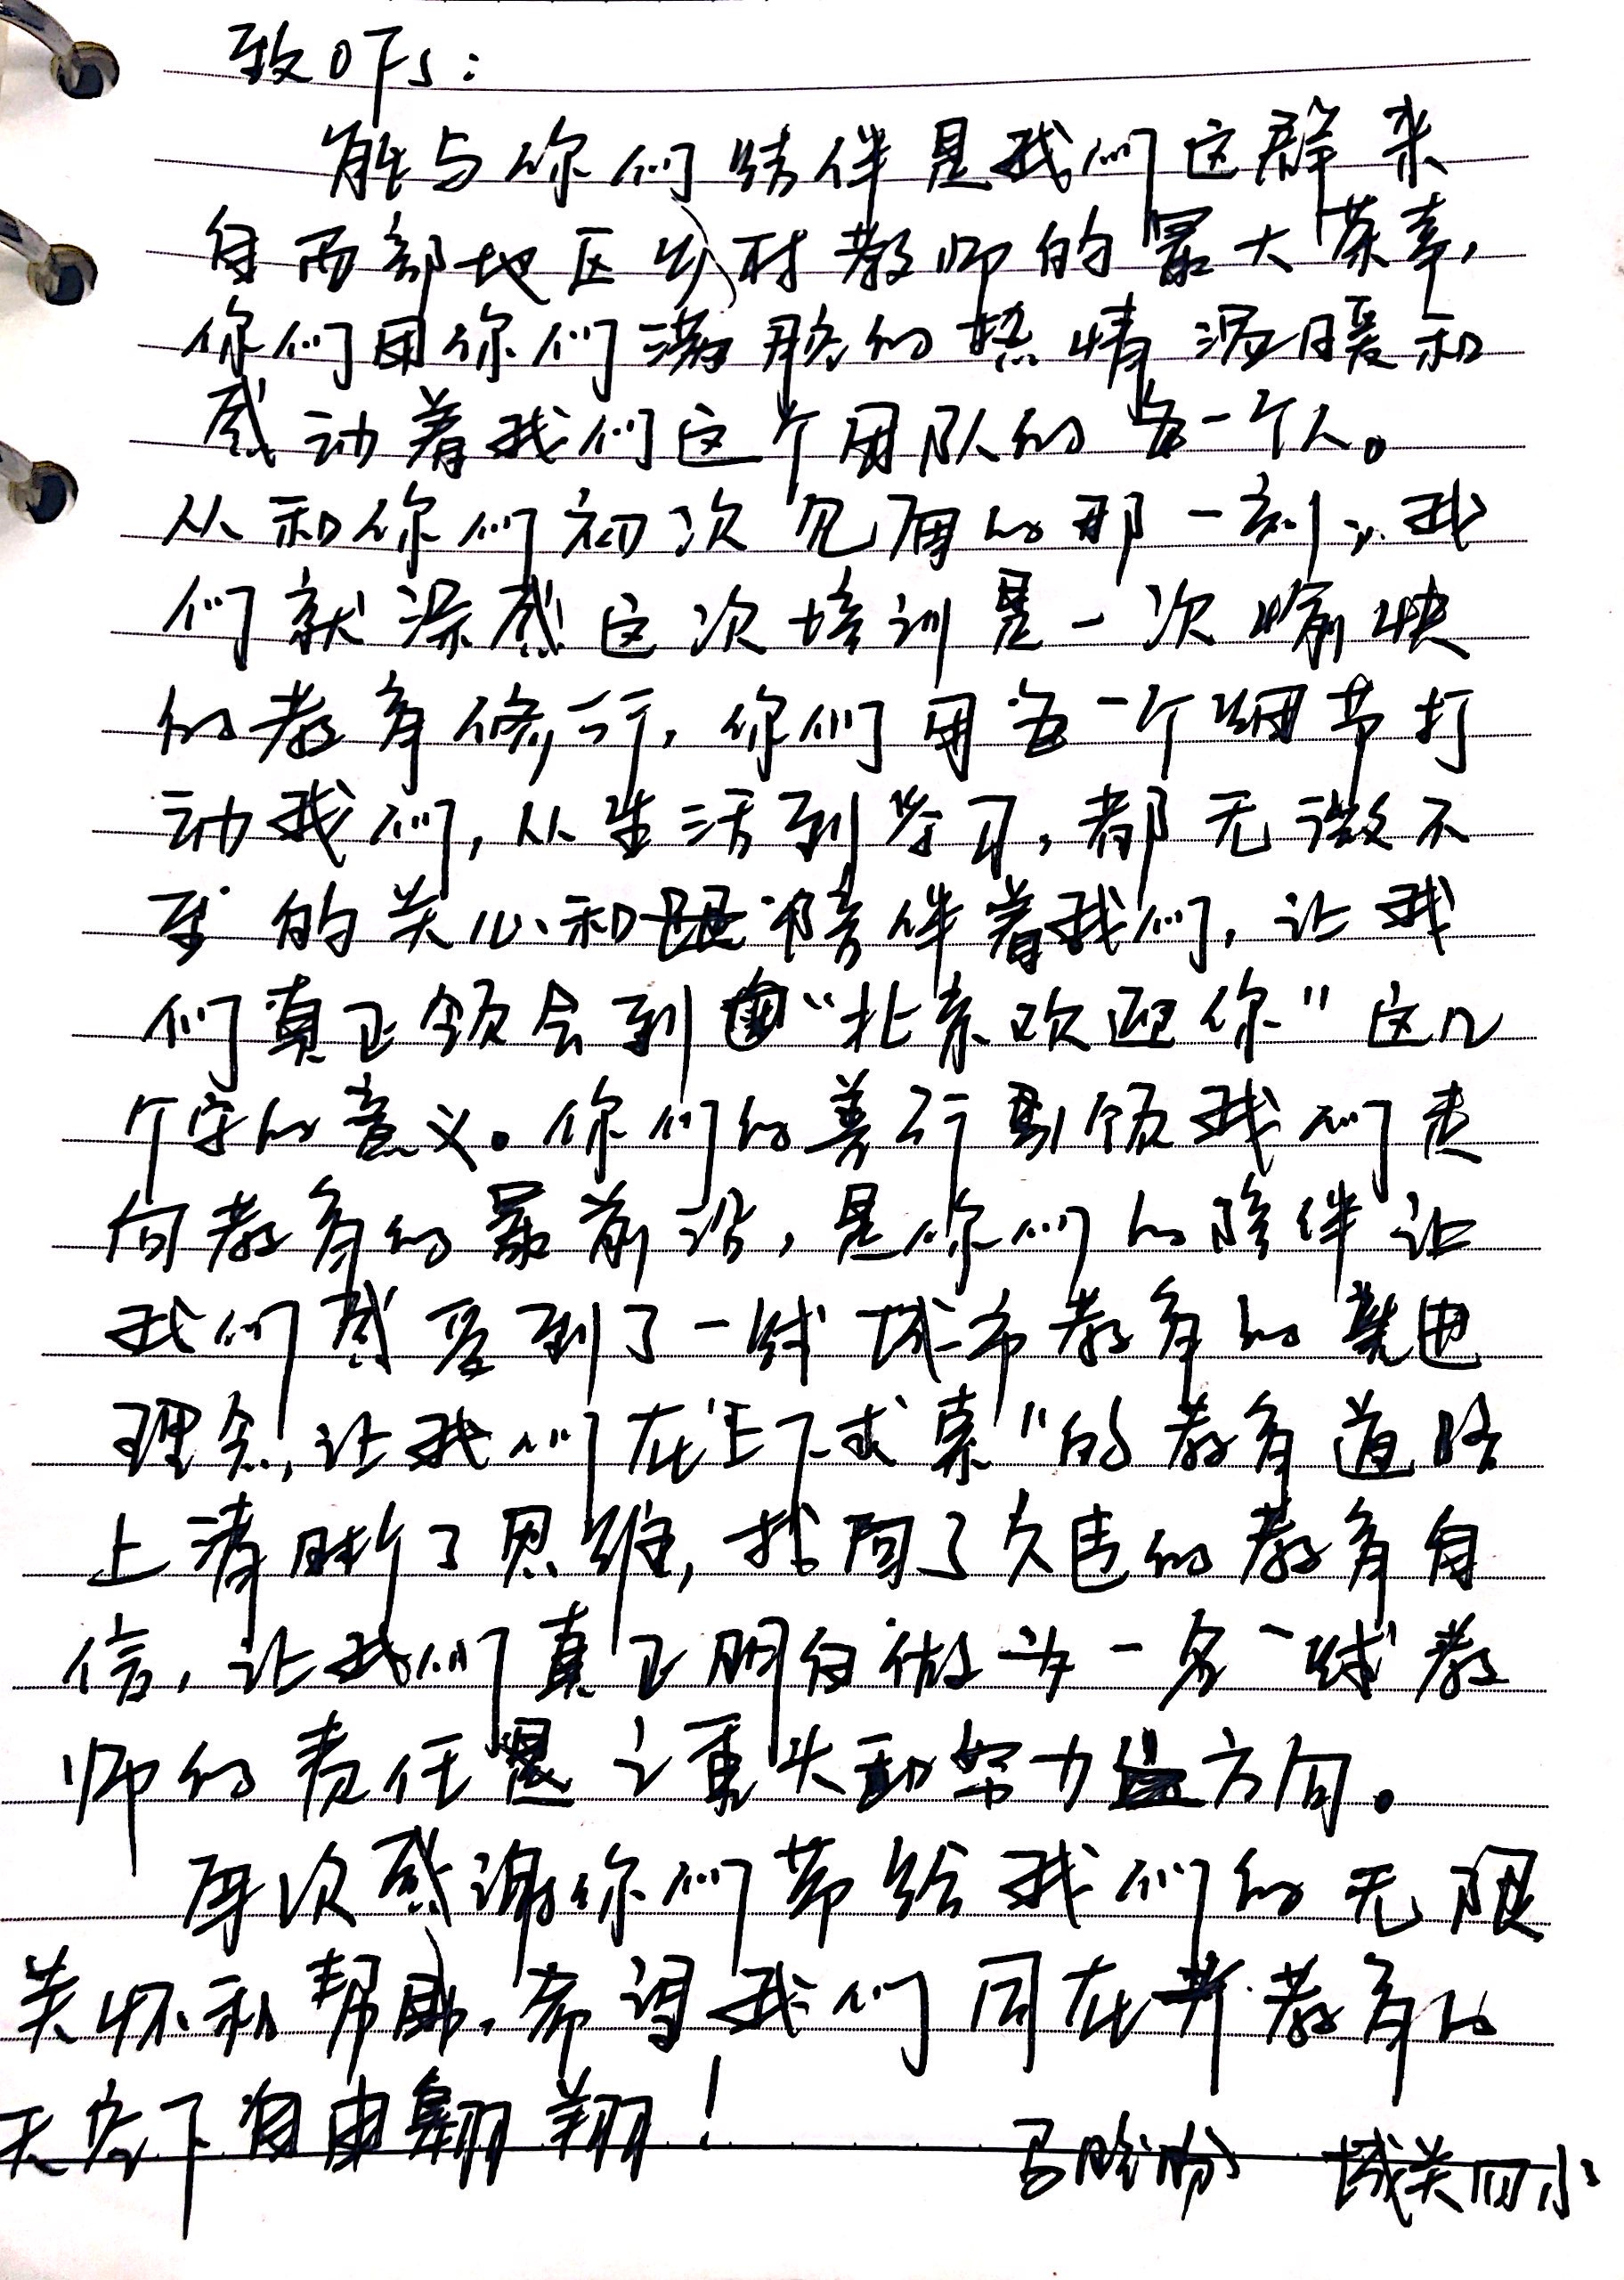 致OFS:
能与你们结伴是我们这群来
自西部地区乡村教师的最大荣幸,
你们用你们满腔的热情温暖和
感动着我们这个团队的每一个人。
从和你们初次见面的那一刻,我
们就深感这次培训是一次愉快
的教育修行,你们用每一个细节打
动我们,从生活到学习,都无微不
至的关心和陪伴着我们,让我
们真正领会到“北京欢迎你”这几
个字的意义。你们的善行引领我们走
向教育的最前沿,是你们的陪伴让
我们感受到了一线城市教育的先进
理念,让我们在“上下求索”的教育道路
上清晰了思维,找回了久违的教育自
信,让我们真正明白做为一名一线教
师的责任之重大和努力方向。
再次感谢你们带给我们的无限
关怀和帮助,希望我们同在教育的
天空下自由翱翔!
马 城关四小